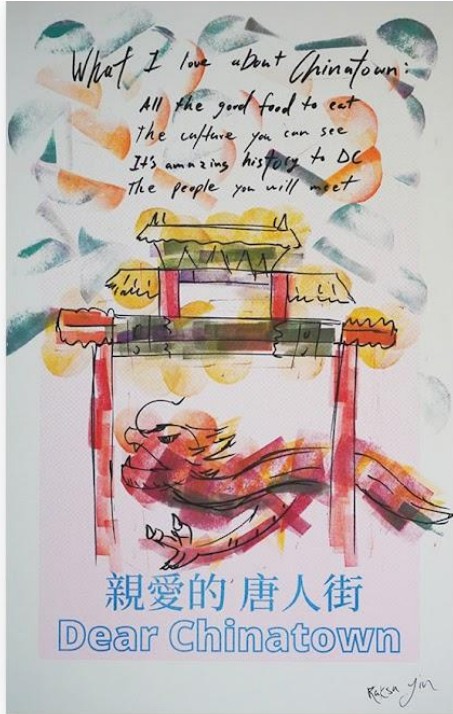 What I love about Chinatown:
All the good food to eat
The culture you can see
It's amazing history to DC
The people you will meet
親愛的 唐人街
Dear Chinatown
Yin